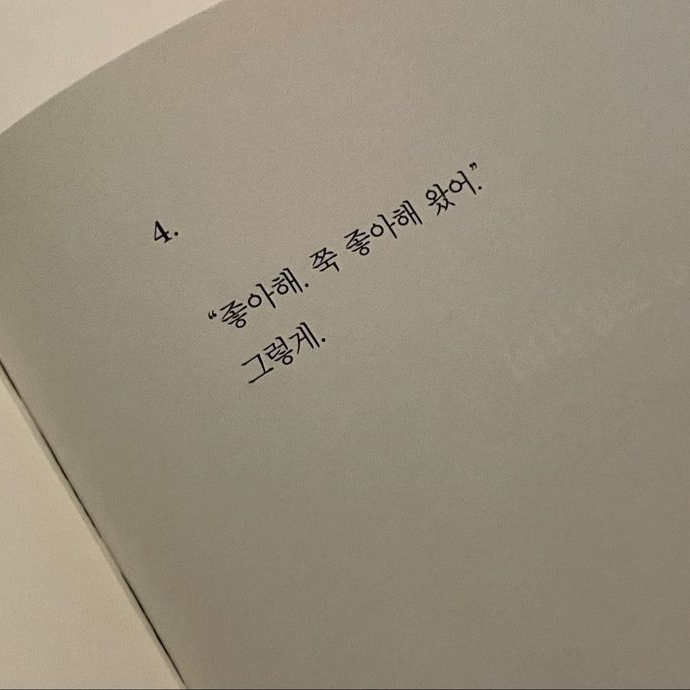 4.
“좋아해. 쭉 좋아해 왔어.”
그렇게.